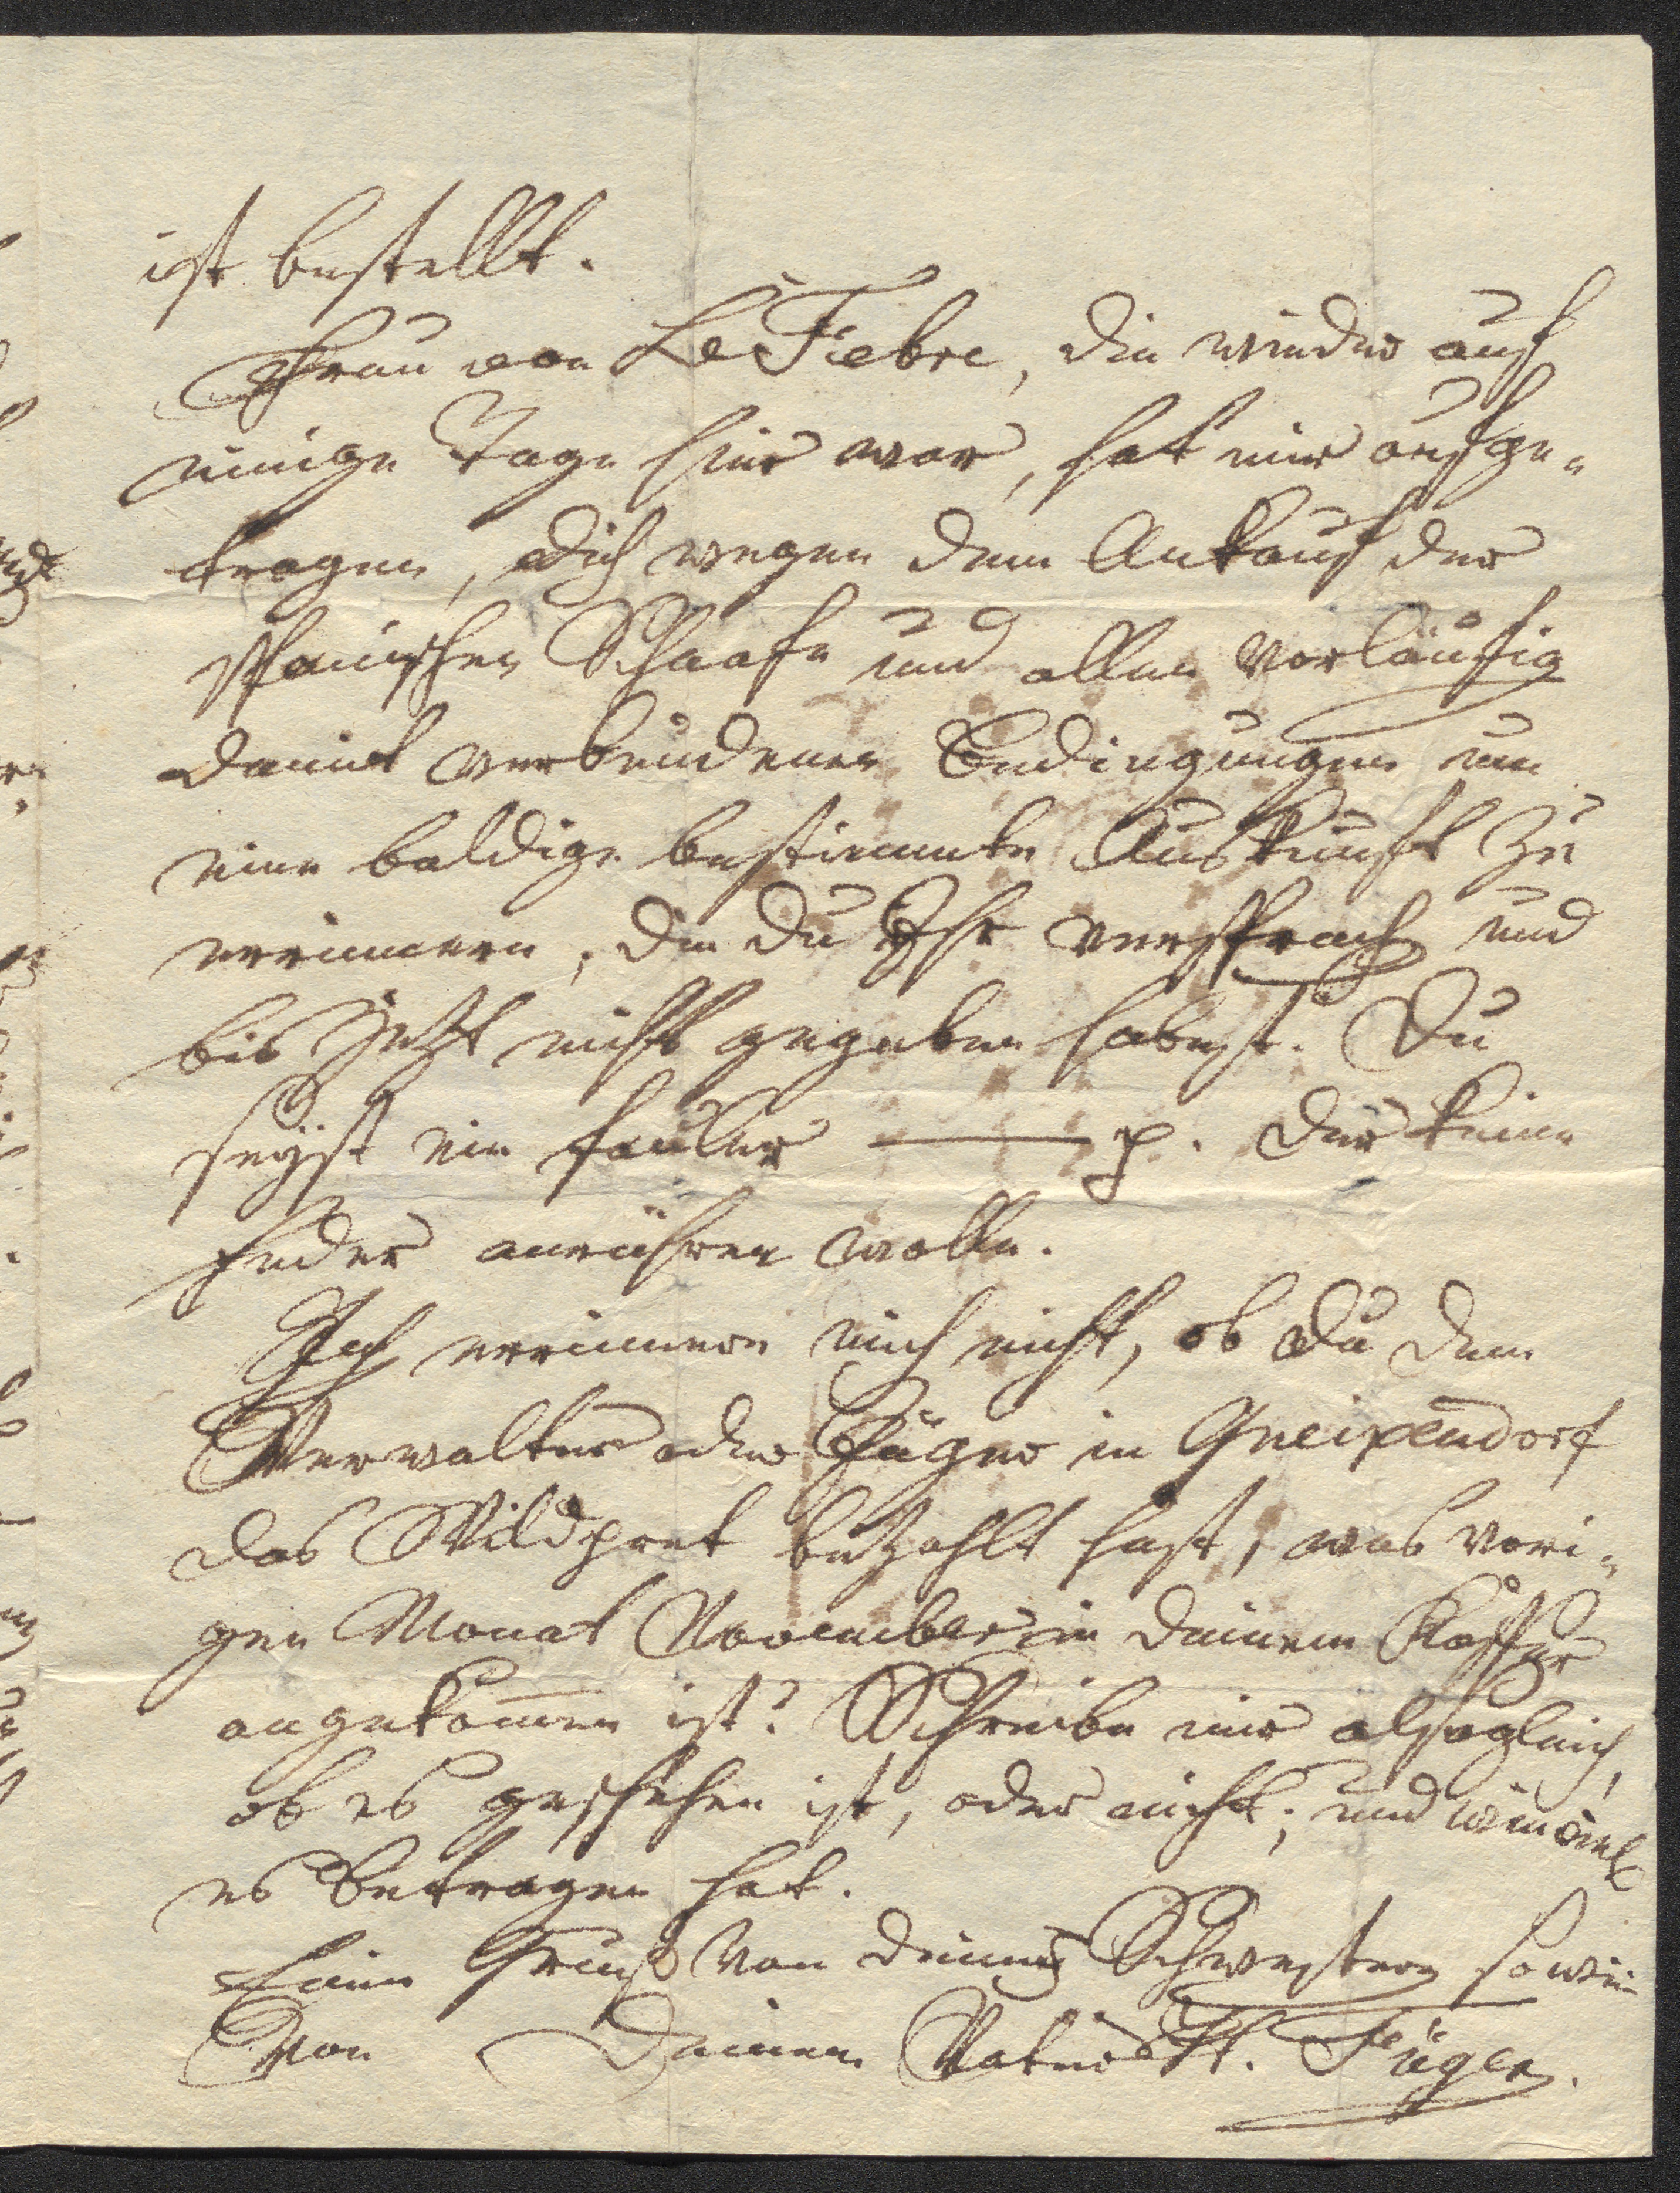 ist bestellt.
Frau von Le Fiebre, die wieder auf
einige Tage hier war, hat mir aufge-
tragen, dich wegen dem Ankauf der
spanischen Schaafe und allen vorläufig
damit verbundenen Bedingungen um
eine baldige bestimmte Auskunft zu
errinnern, die du Ihr versprach und
bis jetzt nicht gegeben habest. Du
seyst ein fauler ——— p. der keine
Feder anrühren wolle.
Ich errinnere mich nicht, ob du dem
Verwalter oder Jäger in Gneixendorf
das Wildpret bezahlt hast, was vori-
gen Monat November in deinem Koffer
angekom̅en ist? Schreibe mir alsogleich,
ob es geschehen ist, oder nicht; und wieviel
es betragen hat.
Einen Gruß von deinen Schwestern sowie
Von Deinem Vater H. Füger.